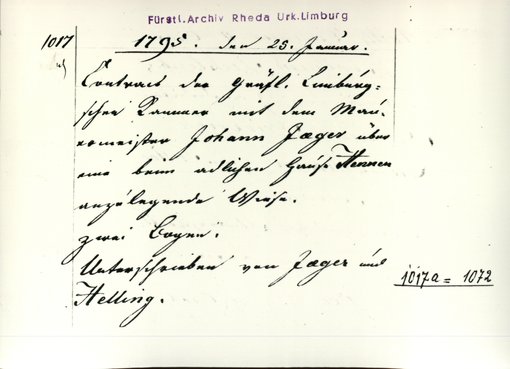 Fürstl. Archiv Rheda Urk. Limburg
1017
1795. den 25. Januar.
Contract der Gräfl. Limburg=
schen Kammer mit dem Mau=
rermeister Johann Jaeger über
eine beim adlichen Hause Hennen
anzulegende Wiese.
zwei Bogen.
Unterschrieben von Jaeger und
Helling.
1017a = 1072